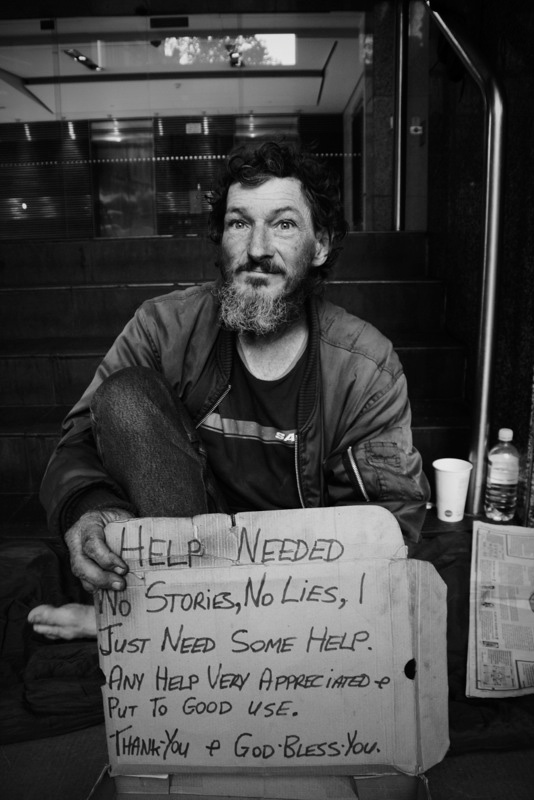 SA
HELP NEEDED
NO STORIES, NO LIES, I
JUST NEED SOME HELP.
ANY HELP VERY APPRECIATED &
PUT TO GOOD USE.
THANK·YOU & GOD·BLESS·YOU.